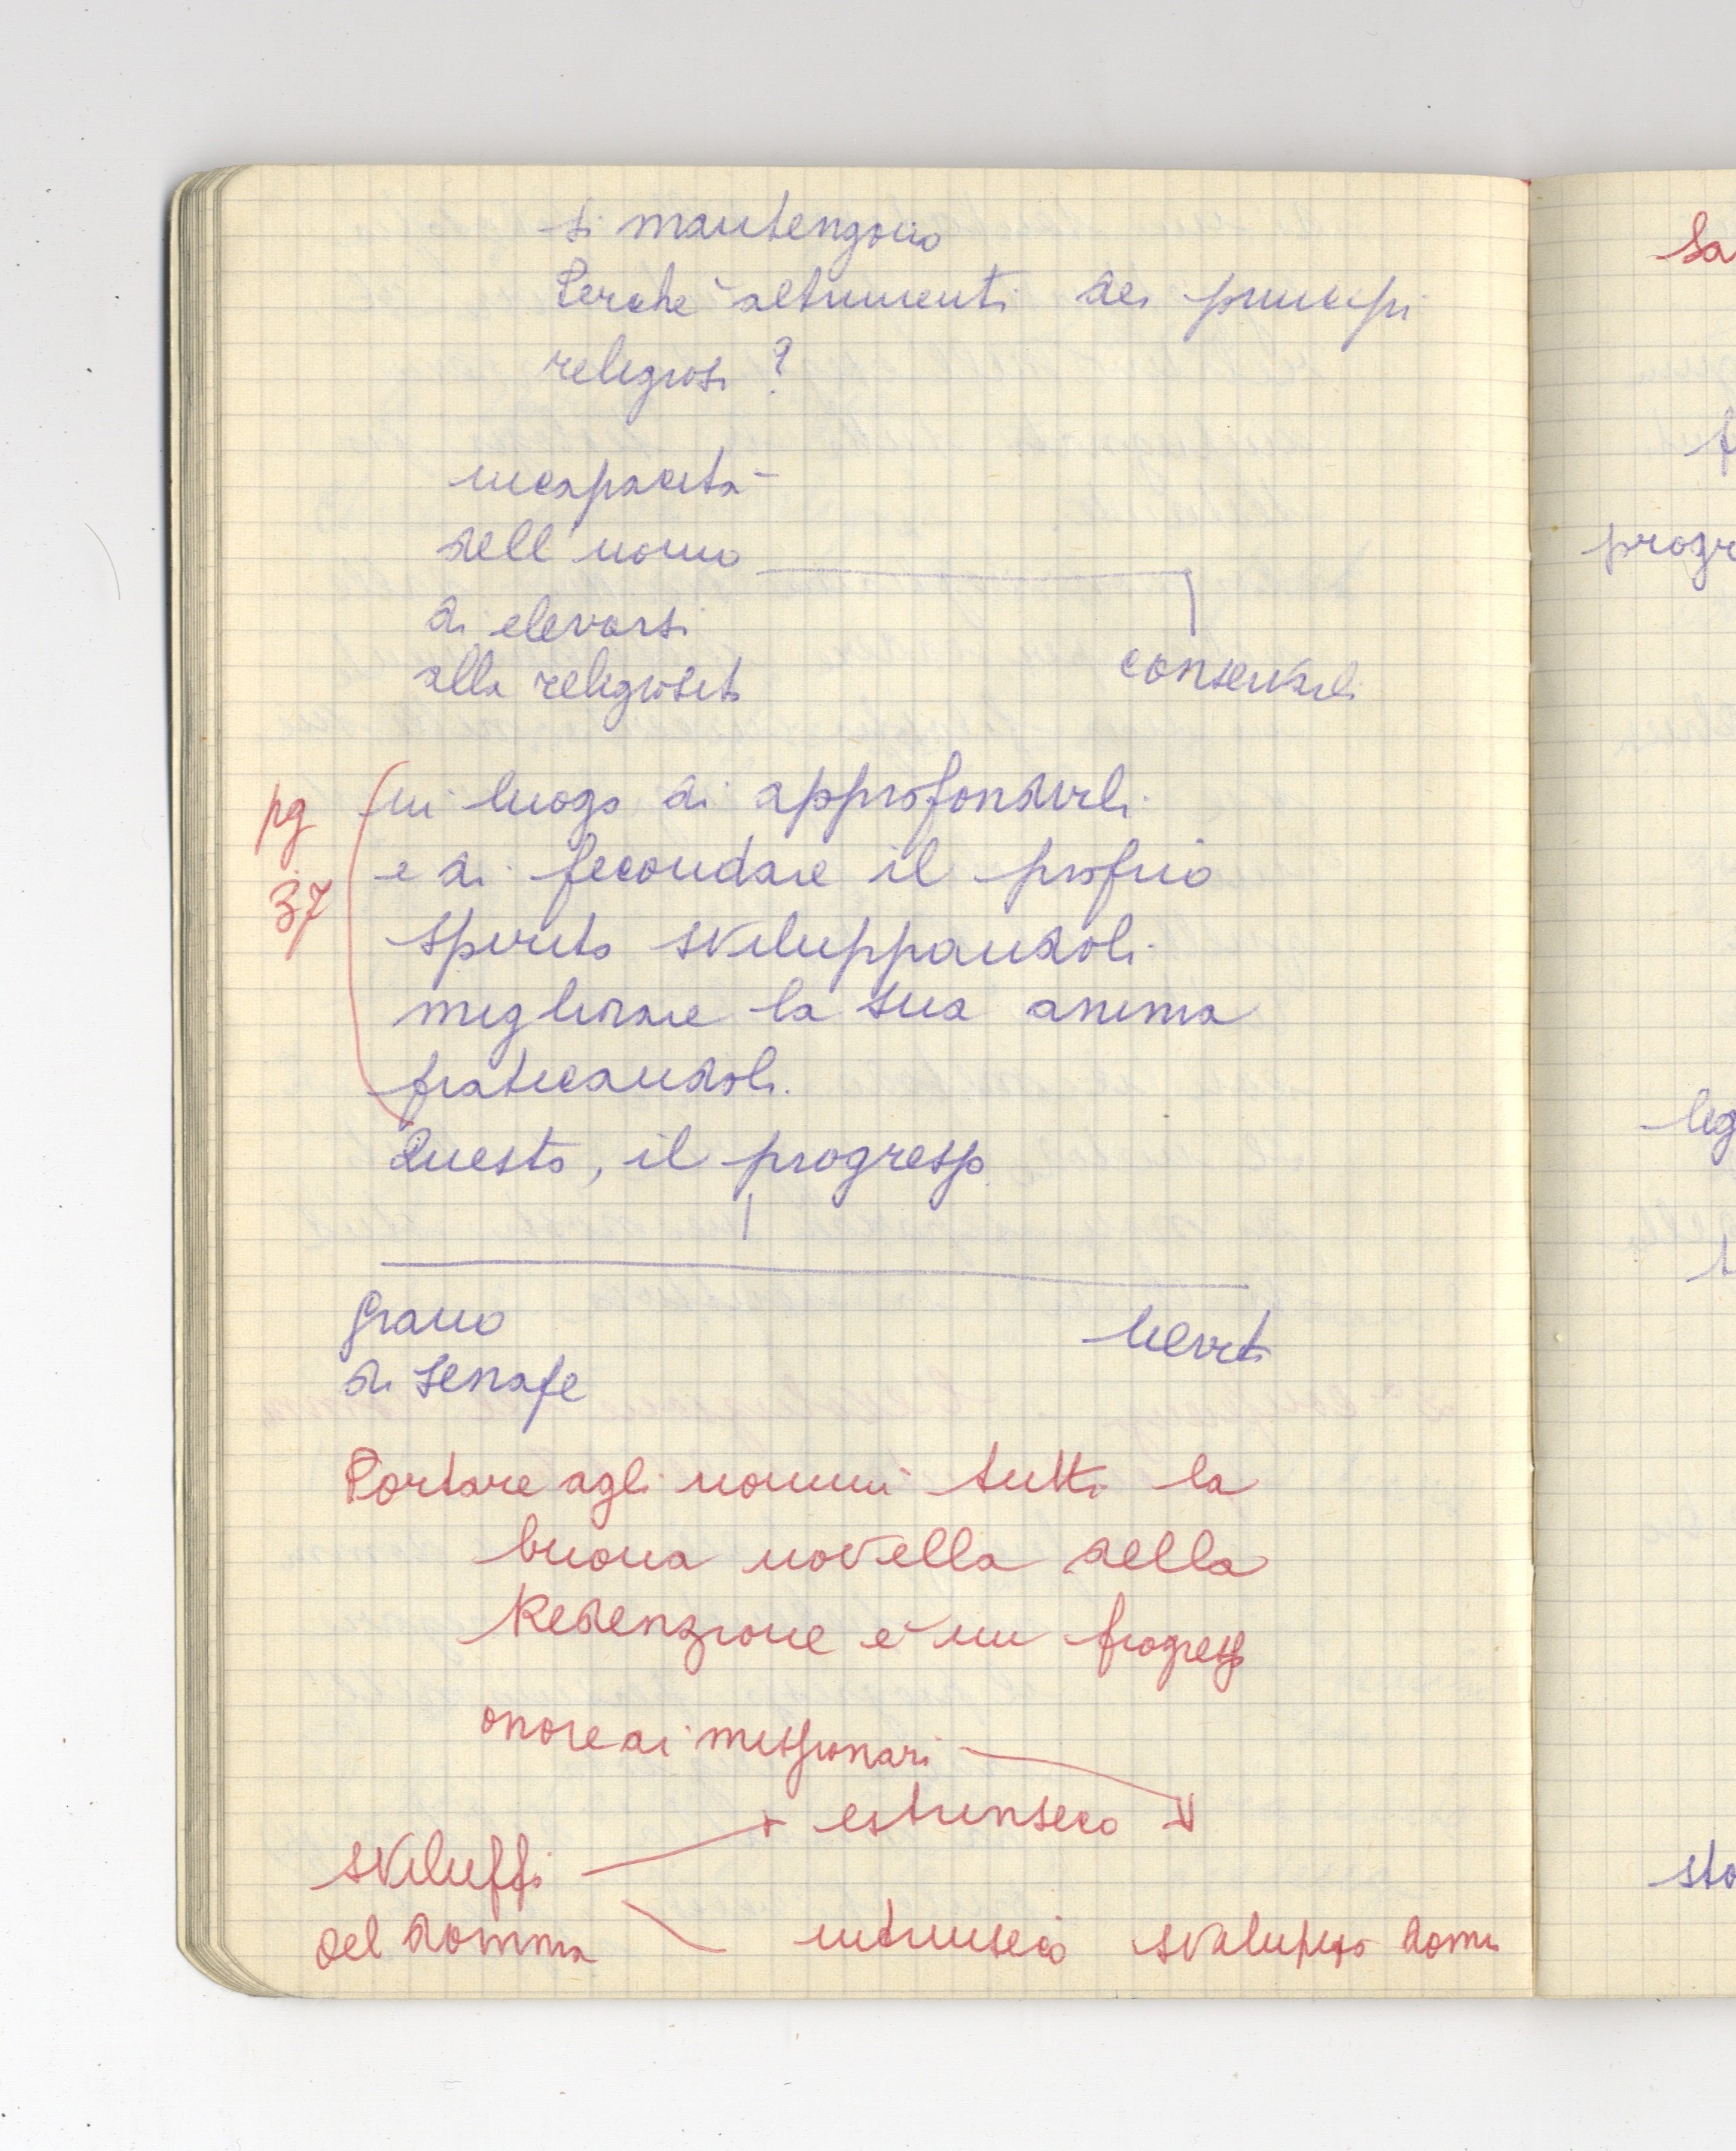 si mantengono
Perchè altrimenti dei principi
religiosi ?
incapacità
dell'uomo
di elevarsi
alla religiosità
conservarli
pg
37
in luogo di approfondirli
e di fecondare il proprio
spirito sviluppandoli
migliorare la sua anima
praticandoli.
Questo, il progresso
grano
di senape
lieviti
Portare agli uomini tutti la
buona novella della
Redenzione è un progresso
onore ai missionari
estrinseco
sviluppi
del domma
intrinseco sviluppo dom
Sa
progr
leg
sto